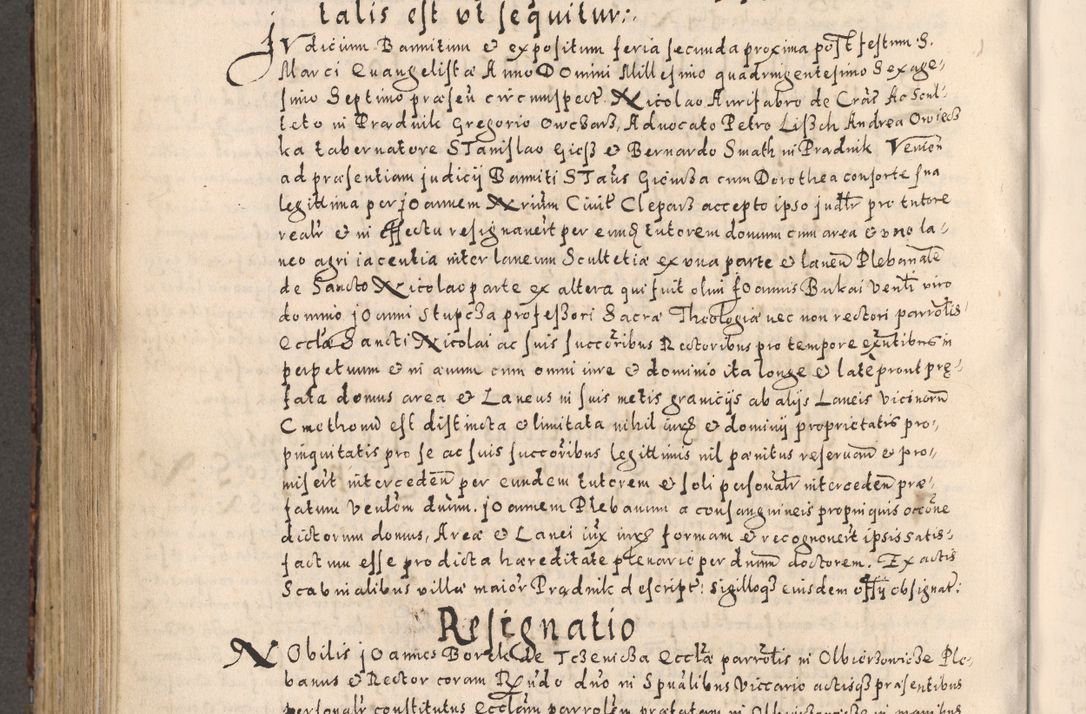 talis est vt sequitur:
Judicium Bannitum & expositum feria secunda proxima post festum S.
Marci Euangelistæ Anno Domini Millesimo quadringentesimo Sexage-
simo Septimo præsen circumspect Nicolao Aurifabro de Crac Ac Scul-
teto in Prądnik Gregorio Owcharz, Aduocato Petro Lisch Andrea Owiecz
ka tabernatore Stanislao Giess & Bernardo Smath in Prądnik Venien
ad præsentiam judicij Banniti Staus cum Dorothea consorte sua
legittima per joannem Ciuit Clepar accepto ipso pro tutore
realr & in effectu resignauert per eund tutorem domum cum area & vno la-
neo agri iacentia inter laneum Scultetiæ ex vna parte & laneu Plebanale
de Sancto Nicolao parte ex altera qui fuit olim Joannis Bukai Ventli viro
domino joanni Stupcza professori Sacræ Theologiæ nec non rectori parrolis
Ecclæ Sancti Nicolai ac suis succoribus Rectoribus pro tempore exntibus in
perpetuum & in æuum cum omni iure & dominio ita longe & late prout prę-
fata domus area & Laneus in suis metis granicijs ab alijs Laneis vicinoru
Cmethonu est distincta & limitata nihil iurs & dominij proprietatis pro-
pinquitatis pro se ac suis succoribus legittimis nil pænitus reseruan & pro-
miseit interceden per eundem tutorem & soli personalr interceden præ-
fatum Venlem dnum. joannem Plebanum a consanguineis propinquis occne
dictorum domus, Areæ & Lanei iux iurs formam & recognouert ipsis satis-
factum esse pro dicta hæreditate plenarie per dnum doctorem. Ex actis
Scabinialibus villæ maior Prądnik descript: sigilloq eiusdem offij obsignat:
Resignatio
Nobilis joannes Borek de Tczenicza Ecclæ parrolis in Olbierzouicze Ple-
banus & Rector coram Rndo dno in Spualibus Viccario actisq præsentibus
personalr constitutus Ecclam parrolem prætatam in